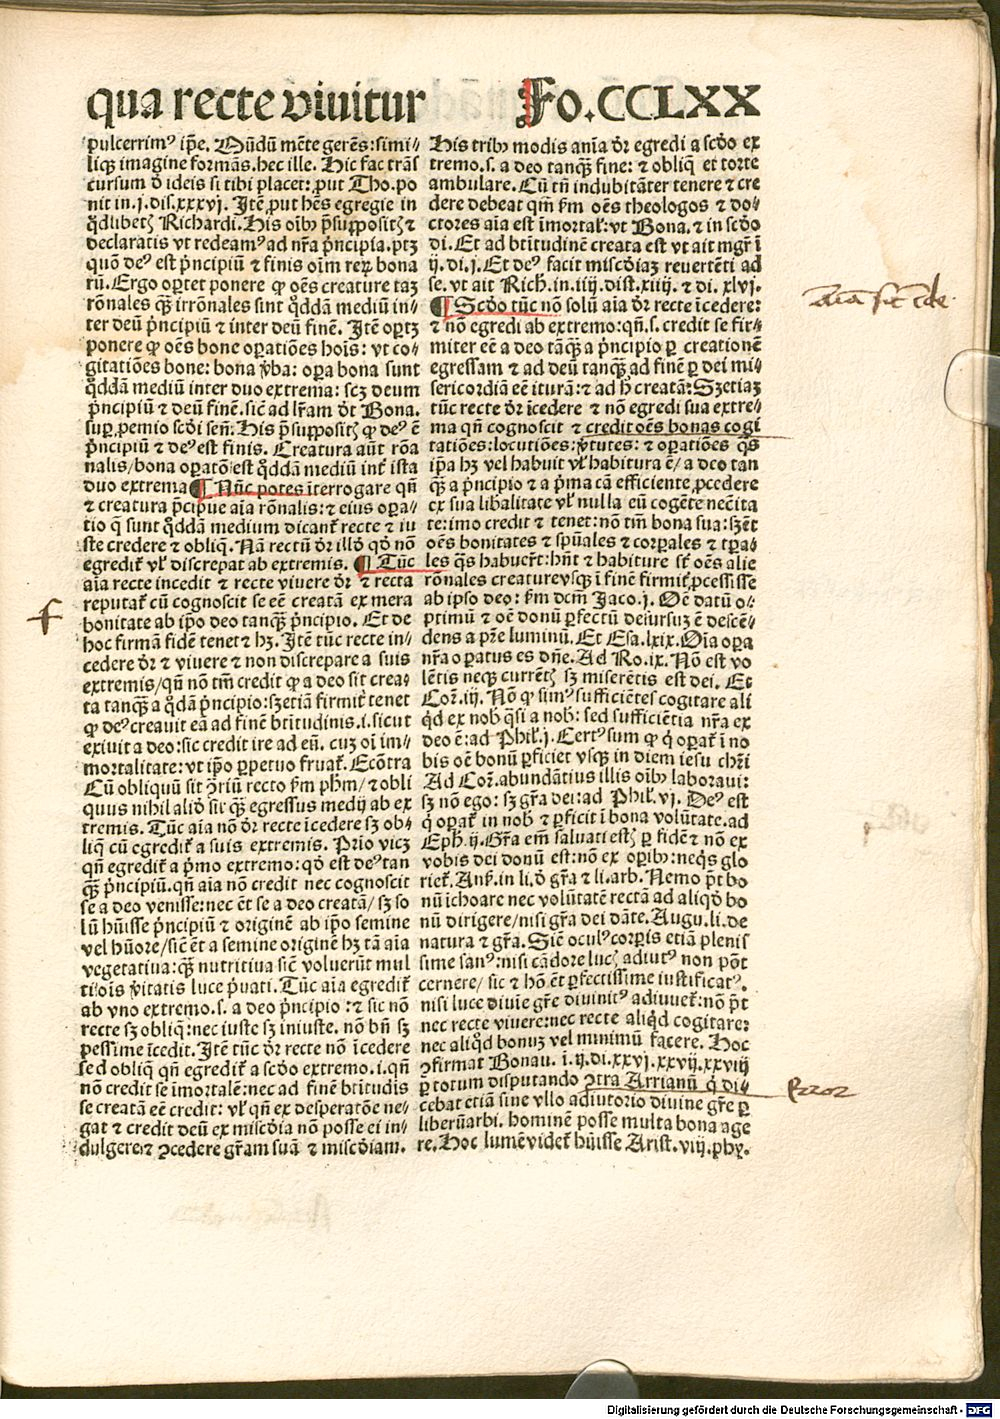 qua recte viuitur Fo.CCLXX
pulcerrimꝰ ip̄e. Mūdū mēte gerēs: simi⸗
liqꝫ imagine formās. hec ille. Hic fac trās
cursum ď ideis si tibi placet: ꝓut Tho. po
nit in .j. dis. xxxvj. Itē ꝓut hēs egregie in
q̊dlibetꝭ Richardi. His oībꝰ p̄suppositꝭ ⁊
declaratis vt redeamꝰ ad nr̄a p̄ncipia. ptꝫ
quō deꝰ est p̄ncipiū ⁊ finis oīm reꝝ bona
rū. Ergo oportet ponere ꝙ oēs creature taꝫ
rōnales qꝫ irrōnales sint q̊ddā mediū in⸗
ter deū p̄ncipiū ⁊ inter deū finē. Itē oportꝫ
ponere ꝙ oēs bone oꝑatiōes hoīs: vt co⸗
gitatiōes bone: bona v̄ba: oꝑa bona sunt
q̊ddā mediū inter duo extrema: scꝫ deum
p̄ncipiū ⁊ deū finē. sic̄ ad lr̄am dr̄t Bona.
suꝑ ꝓemio scďi sen̄. His p̄suppositꝭ ꝙ deꝰ ē
p̄ncipiū ⁊ deꝰ est finis. Creatura aūt rōa
nalis/ bona oꝑatō est q̊ddā mediū int̄ ista
duo extrema ¶ Nūc potes īterrogare qn̄
⁊ creatura p̄cipue aīa rōnalis: ⁊ eius oꝑa⸗
tio q̄ sunt q̊ddā medium dicant᷑ recte ⁊ iu
ste credere ⁊ obliq̄. Nā rectū dr̄ illď qď nō
egredit᷑ vl᷑ discrepat ab extremis. ¶ Tūc
aīa recte incedit ⁊ recte viuere dr̄ ⁊ recta
reputat᷑ cū cognoscit se eē creatā ex mera
bonitate ab ip̄o deo tanqꝫ p̄ncipio. Et de
hoc firmā fidē tenet ⁊ hꝫ. Itē tūc recte in⸗
cedere dr̄ ⁊ viuere ⁊ non discrepare a suis
extremis/ qn̄ nō tm̄ credit ꝙ a deo sit crea⸗
ta tanqꝫ a q̊dā p̄ncipio: sꝫ etiā firmit᷑ tenet
ꝙ deꝰ creauit eā ad finē btītudinis .i. sicut
exiuit a deo: sic credit ire ad eū. cuꝫ oī im⸗
mortalitate: vt ip̄o ꝑpetuo fruat᷑. Ecōtra
Cū obliquū sit ꝯriū recto ẜm pħm/ ⁊ obli
quus nihil aliď sit qꝫ egressus medij ab ex
tremis. Tūc aīa nō dr̄ recte īcedere sꝫ ob⸗
liq̄ cū egredit᷑ a suis extremis. Prīo vicꝫ
qn̄ egredit᷑ a p̄mo extremo: qď est deꝰ tan
qꝫ p̄ncipiū. qn̄ aīa nō credit nec cognoscit
se a deo venisse: nec ēt se a deo creatā/ sꝫ so
lū hūisse p̄ncipiū ⁊ originē ab ip̄o semine
vel hūore/ sic̄ ēt a semine originē hꝫ tā aīa
vegetatiua: qꝫ nutritiua sic̄ voluerūt mul
ti oīs v̄itatis luce p̄uati. Tūc aīa egredit᷑
ab vno extremo .s. a deo p̄ncipio: ⁊ sic nō
recte sꝫ obliq̄: nec iuste sꝫ iniuste. nō bn̄ sꝫ
pessime īcedit. Itē tūc dr̄ recte nō īcedere
sed obliq̄ qn̄ egredit᷑ a scďo extremo .i. qn̄
nō credit se īmortalē: nec ad finē btītudis
se creatā eē credit: vl᷑ qn̄ ex desperatōe ne⸗
gat ⁊ credit deū ex miscďia nō posse ei in⸗
dulgere: ⁊ ꝯcedere gr̄am suā ⁊ miscďiam.
His tribꝰ modis anīa dr̄ egredi a scďo ex
tremo .s. a deo tanqꝫ fine: ⁊ obliq̄ et torte
ambulare. Cū tn̄ indubitāter tenere ⁊ cre
dere debeat qm̄ ẜm oēs theologos ⁊ do⸗
ctores aīa est īmortal᷑: vt Bona. ⁊ in scďo
di. Et ad btītudinē creata est vt ait mgr̄ ī
ij. di. j. Et deꝰ facit miscďiaꝫ reuertēti ad
se. vt ait Rich̄. in .iiij. dist. xiiij. ⁊ di. xlvj.
¶ Scďo tūc nō solū aīa dr̄ recte īcedere:
⁊ nō egredi ab extremo: qn̄ .s. credit se fir⸗
miter eē a deo tāqꝫ a p̄ncipio ꝑ creationē
egressam ⁊ ad deū tanqꝫ ad finē ꝑ dei mi⸗
sericordiā eē iturā: ⁊ ad ħ creatā: Sꝫ etiaꝫ
tūc recte dr̄ īcedere ⁊ nō egredi sua extre⸗
ma qn̄ cognoscit ⁊ credit oēs bonas cogi
tatiōes: locutiōes: v̄tutes: ⁊ oꝑatiōes q̄s
ip̄a hꝫ vel habuit vl᷑ habitura ē/ a deo tan
qꝫ a p̄ncipio ⁊ a p̄ma cā efficiente ꝓcedere
ex sua liƀalitate vl᷑ nulla eū cogēte necīta
te: imo credit ⁊ tenet: nō tm̄ bona sua: sꝫ ēt
oēs bonitates ⁊ spūales ⁊ corꝑales ⁊ tꝑa⸗
les q̄s habuer̄t: hn̄t ⁊ habiture sr̄t oēs alie
rōnales creature vsqꝫ ī finē firmit᷑ ꝓcessisse
ab ipso deo: ẜm dcm̄ Jaco. j. Oē datū o⸗
ptimū ⁊ oē donū ꝑfectū deiursuꝫ ē descē⸗
dens a pr̄e luminū. Et Esa. lxix. Oīa oꝑa
nr̄a oꝑatus es dn̄e. Ad Ro. ix. Nō est vo
lētis neqꝫ currētꝭ sꝫ miserētis est dei. Et
Cor̄. iij. Nō ꝙ simꝰ sufficiētes cogitare ali
q̊d ex nob̄ q̄si a nob̄: sed sufficiētia nr̄a ex
deo ē: ad Phil᷑. j. Certꝰ sum ꝙ q̇ oꝑat᷑ ī no
bis oē bonū ꝑficiet vsqꝫ in diem iesu chr̄i
Ad Cor̄. abundātius illis oībꝰ laboraui:
sꝫ nō ego: sꝫ gr̄a dei: ad Phil᷑. vj. Deꝰ est
q̇ oꝑat᷑ in nob̄ ⁊ ꝑficit ī bona volūtate. ad
Eph̄. ij. Gr̄a em̄ saluati estꝭ ꝑ fidē ⁊ nō ex
vobis dei donū est: nō ex oꝑibꝰ: neq̄s glo
riet᷑. Anẜ. in li. ď gr̄a ⁊ li. arb. Nemo pōt bo
nū īchoare nec volūtatē rectā ad aliqď bo
nū dirigere/ nisi gr̄a dei dāte. Augu. li. de
natura ⁊ gr̄a. Sic̄ oculꝰ corꝑis etiā plenis
sime sanꝰ: nisi cādore lucꝭ adiutꝰ non pōt
cernere/ sic ⁊ hō ēt ꝑfectissime iustificatꝰ.
nisi luce diuīe gr̄e diuinitꝰ adiuuet᷑: nō pōt
nec recte viuere: nec recte aliq̊d cogitare:
nec aliq̊d bonuꝫ vel minimū facere. Hoc
ꝯfirmat Bonau. ī .ij. di. xxvj. xxvij. xxviij
ꝑ totum disputando ꝯtra Arrianū q̇ di⸗
cebat etiā sine vllo adiutorio diuine gr̄e ꝑ
liberū arbi. hominē posse multa bona age
re. Hoc lumē videt᷑ hūisse Arist. viij. phy.
f
Digitalisierung gefördert durch die Deutsche Forschungsgemeinschaft - DFG